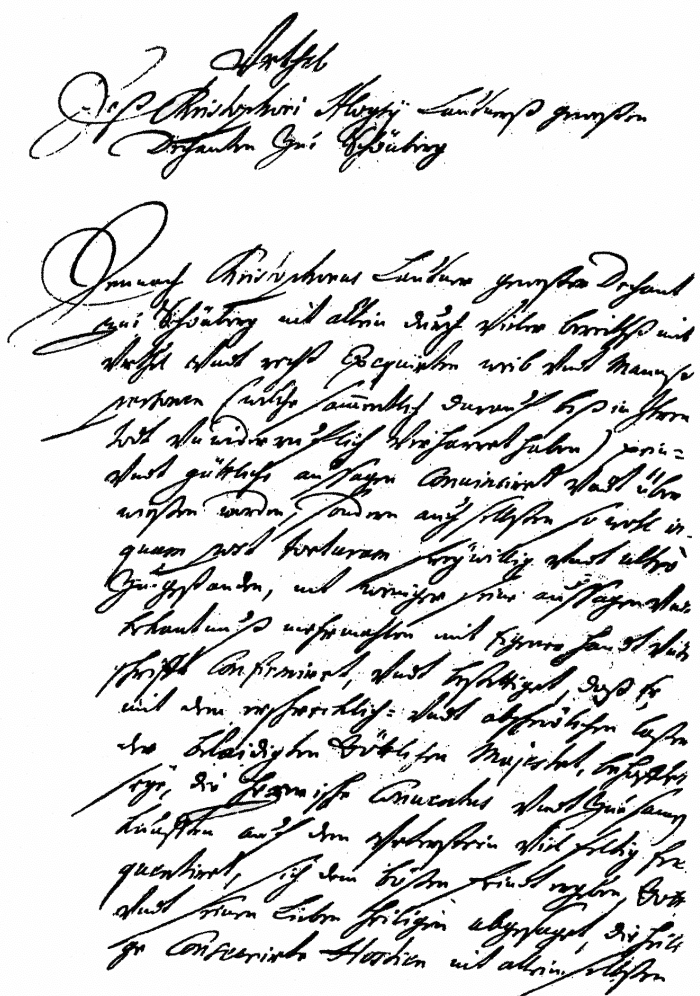 Urthel
Deß Christophori Aloysij Lautners geweßen
Dechanten Zue Schönberg
Demnach Christophorus Lautner geweßter Dechant
zue Schönberg nit allein durch Vieler bereithß mit
Urthel Undt recht Exequirten weib Undt Mannß
persohnen (welche sammentlich darauf biß in Ihren
todt Unwiderruflich Verharret haben) pein-
Undt güttliche außsagen Convincirt Undt über
wießen worden, Sondern auch selbsten so wohl in-
quam post torturam freywillig Undt alles
Zugestanden, nit weniger seine außsagen Undt
bekantnuß mehrmahlen mit Eigener handt Unter
schrifft Confirmiret, Undt bestettiget, daß Er,
mit dem erschrecklich- Undt abscheulichen laster
der beleidigten Göttlichen Majestet, behafftet
seye, die hexerische Conventus Undt Zusamen
kunfften auf dem Peterstein Viel feltig fre
quentiret, sich dem bößen feindt ergeben, Gott
Undt seinen Lieben heiligen abgesaget, die heili
ge Consecrirte Hostien nit allein selbsten